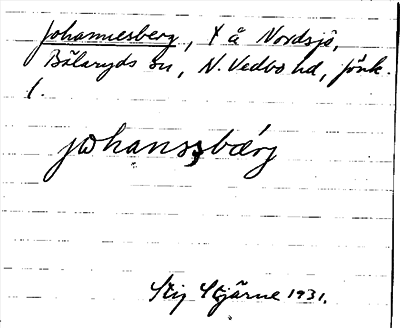 Johannesberg, t å Nordsjö,
Bälaryds sn, N. Vedbo hd, Jönk.
l.
johanssbærj
Stig Stjärne 1931.